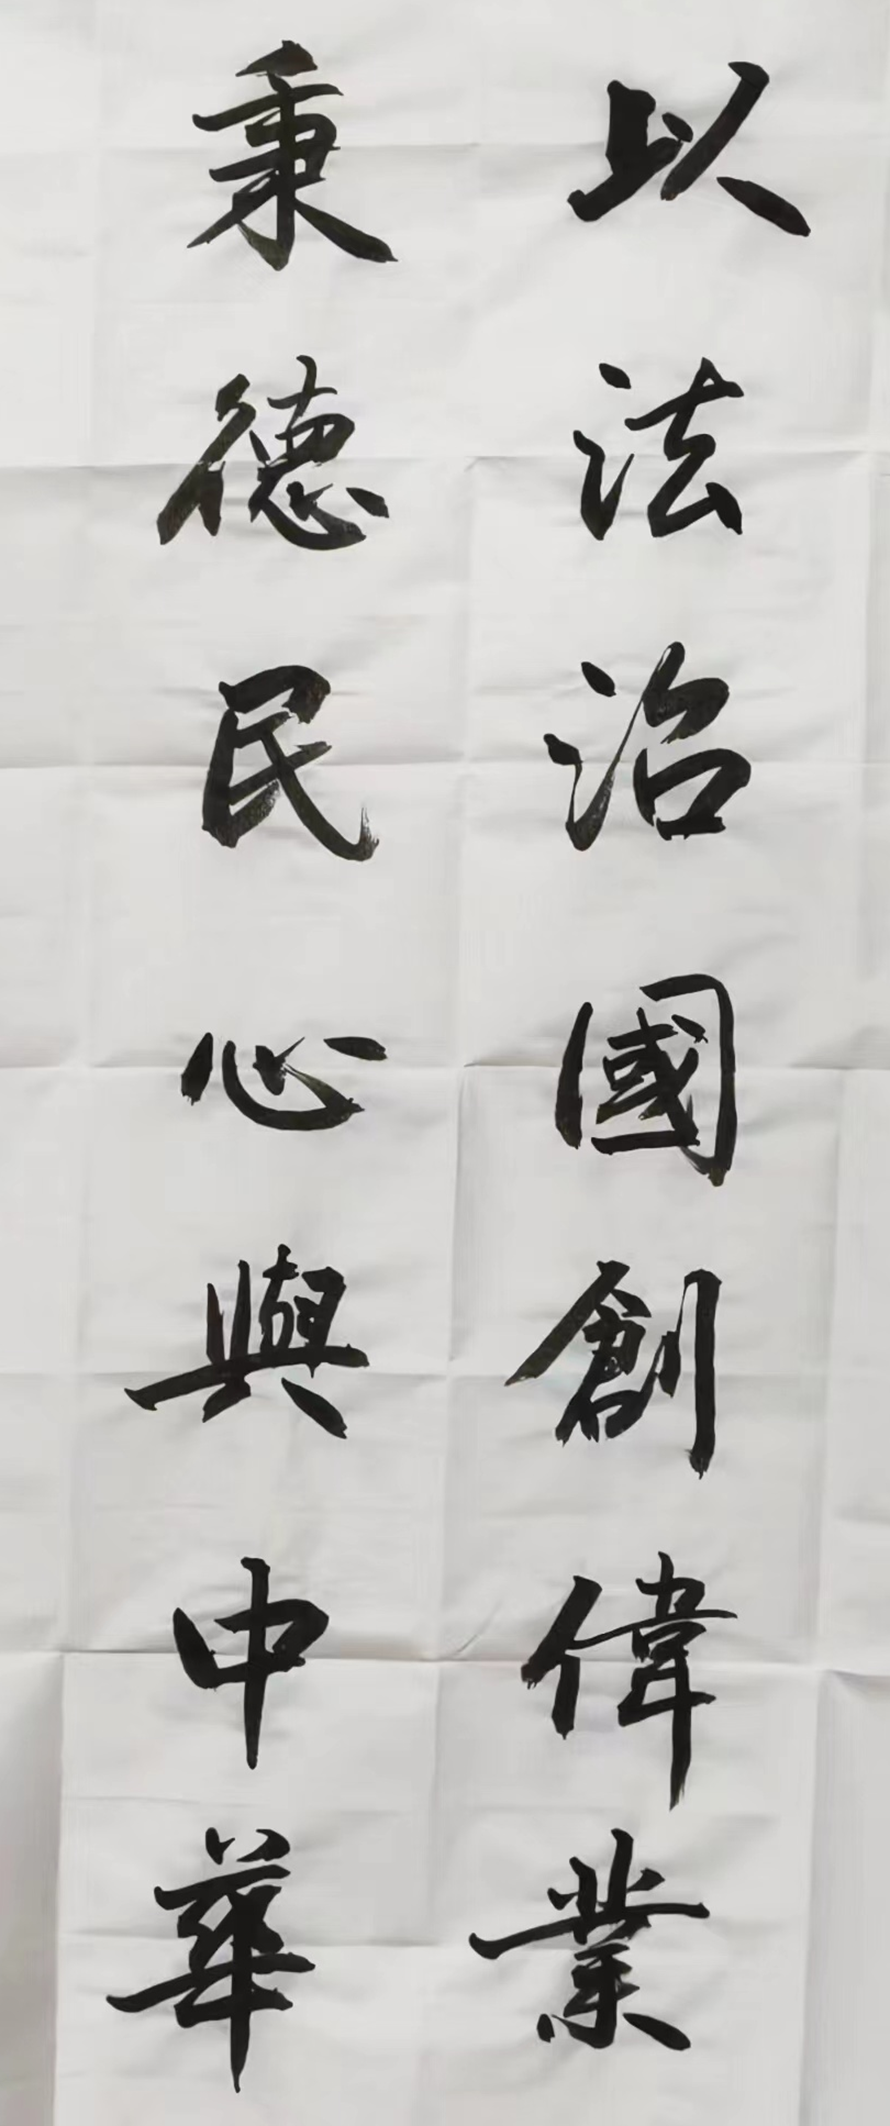 以法治國創偉業
秉德民心與中華